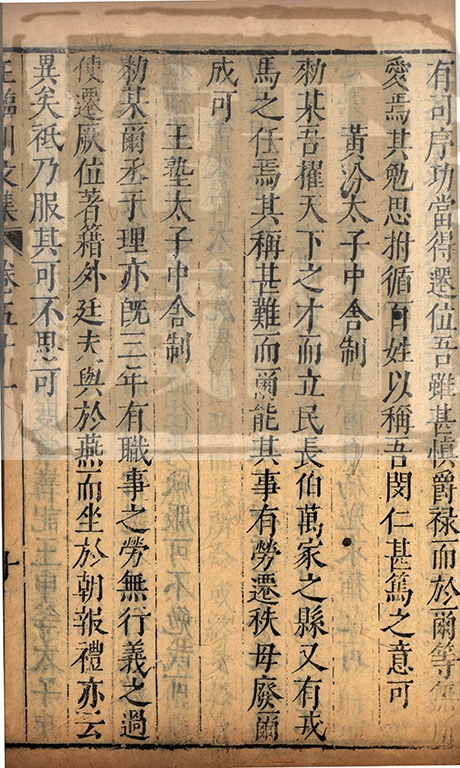 有司序功當得遷位吾雖甚愼爵祿而於爾等無
愛焉其勉思拊循百姓以稱吾閔仁甚篤之意可
黃汾太子中舍制
勑某吾擢天下之才而立民長伯萬家之縣又有戎
馬之任焉其稱甚難而爾能其事有勞遷秩毋廢爾
成可
王塾太子中舍制
勑某爾丞于理亦旣三年有職事之勞無行義之過
使遷厥位著籍外廷夫與於燕而坐於朝報禮亦云
異矣祗乃服其可不思可
王臨川文集 卷五十一